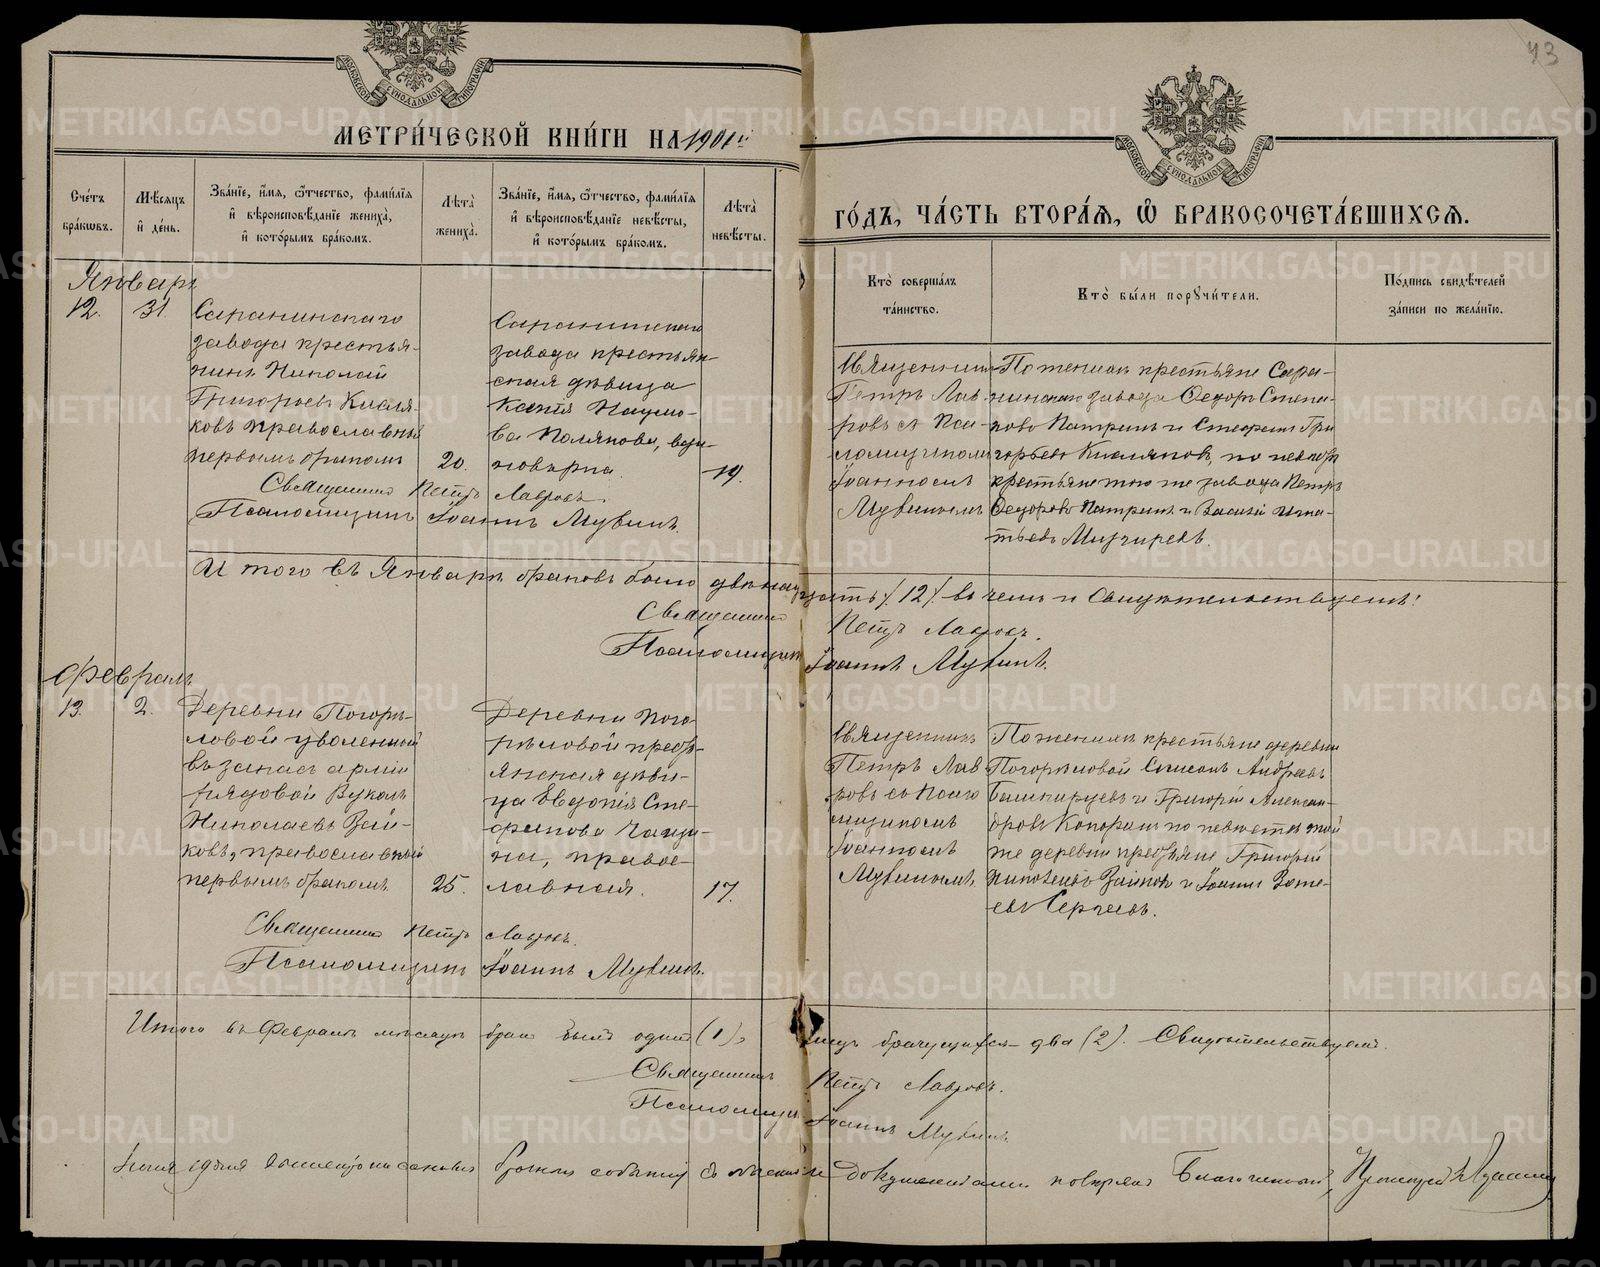 43
МОСКОВСКОЙ СѴНОДАЛЬНОЙ ТИПОГРАФІИ
МЕТРИ́ЧЕСКОЙ КНИ́ГИ НА 1901й
МОСКОВСКОЙ СѴНОДАЛЬНОЙ ТИПОГРАФІИ
ГО́ДЪ, ЧА́СТЬ ВТОРА́Я, Ѽ БРАКОСОЧЕТА́ВШИХСЯ.
Сче́тъ бра́кѡвъ.
Мѣ́сяцъ и҆ де́нь.
Зва́нїе, и҆́мя, ѻ҆́тчество, фами́лїя
и҆ вѣроисповѣ́данїе жениха̀,
и҆ кото́рымъ бра́комъ.
Лѣ́та̀ жениха̀.
Зва́нїе, и҆́мя, ѻ҆́тчество, фами́лїя
и҆ вѣроисповѣ́данїе невѣ́сты,
и҆ кото́рымъ бра́комъ.
Лѣ́та̀ невѣ́сты.
Кто̀ соверша́лъ
та́инство.
Кто̀ бы́ли порꙋчи́тели.
По́дпись свидѣ́телей
за́писи по жела́нїю.
Январь
12.
31.
Саранинскаго
завода крестья-
нинъ Николай
Григорьевъ Кисля-
ковъ православный
первымъ бракомъ
20.
Саранинскаго
завода крестьян-
ская дѣвица
Ксенія Наумо-
ва Полякова, еди-
новѣрка
19.
Священникъ
Петръ Лав-
ровъ съ Пса-
ломщикомъ
Іоанномъ
Мувинымъ
По женихѣ крестьяне Сара-
нинскаго завода Ѳедоръ Степа-
новъ Патринъ и Стефанъ Гри
горьевъ Кисляковъ, по невѣстѣ
крестьяне того же завода Петръ
Ѳедоровъ Патринъ и Василій Игна-
тьевъ
Священникъ Петръ Лавровъ.
Псаломщикъ Іоаннъ Мувинъ.
Итого въ Январѣ браковъ было двѣнадцать /.12/. въ чемъ и Свидѣтельствуемъ:
Священникъ Петръ Лавровъ.
Псаломщикъ Іоаннъ Мувинъ.
Февраль
13.
2.
Деревни Погорѣ-
ловой уволенный
въ запасъ арміи
рядовой Вуколъ
Николаевъ Зай-
ковъ, православный
первымъ бракомъ
25.
Деревни Пого
рѣловой кресть-
янская дѣви-
ца Евдокія Сте-
фанова
на, правос-
лавная.
17.
Священникъ
Петръ Лав
ровъ съ Псало
мщикомъ
Іоанномъ
Мувинымъ.
По женихѣ крестьяне деревни
Погорѣловой Симеонъ Андреевъ
Башкирцевъ и Григорій Алексан-
дровъ по невѣстѣ той
же деревни крестьяне Григорій
Николаевъ Зайковъ и Іоаннъ
евъ Сергѣевъ.
Священникъ Петръ Лавровъ.
Псаломщикъ Іоаннъ Мувинъ.
Итого въ Февралѣ мѣсяцѣ бракъ былъ одинъ (1),
лицъ брачущихся два (2). Свидѣтельствуемъ.
Священникъ Петръ Лавровъ.
Псаломщикъ Іоаннъ Мувинъ.
документами повѣрялъ Благочинный,
METRIKI.GASO-URAL.RU